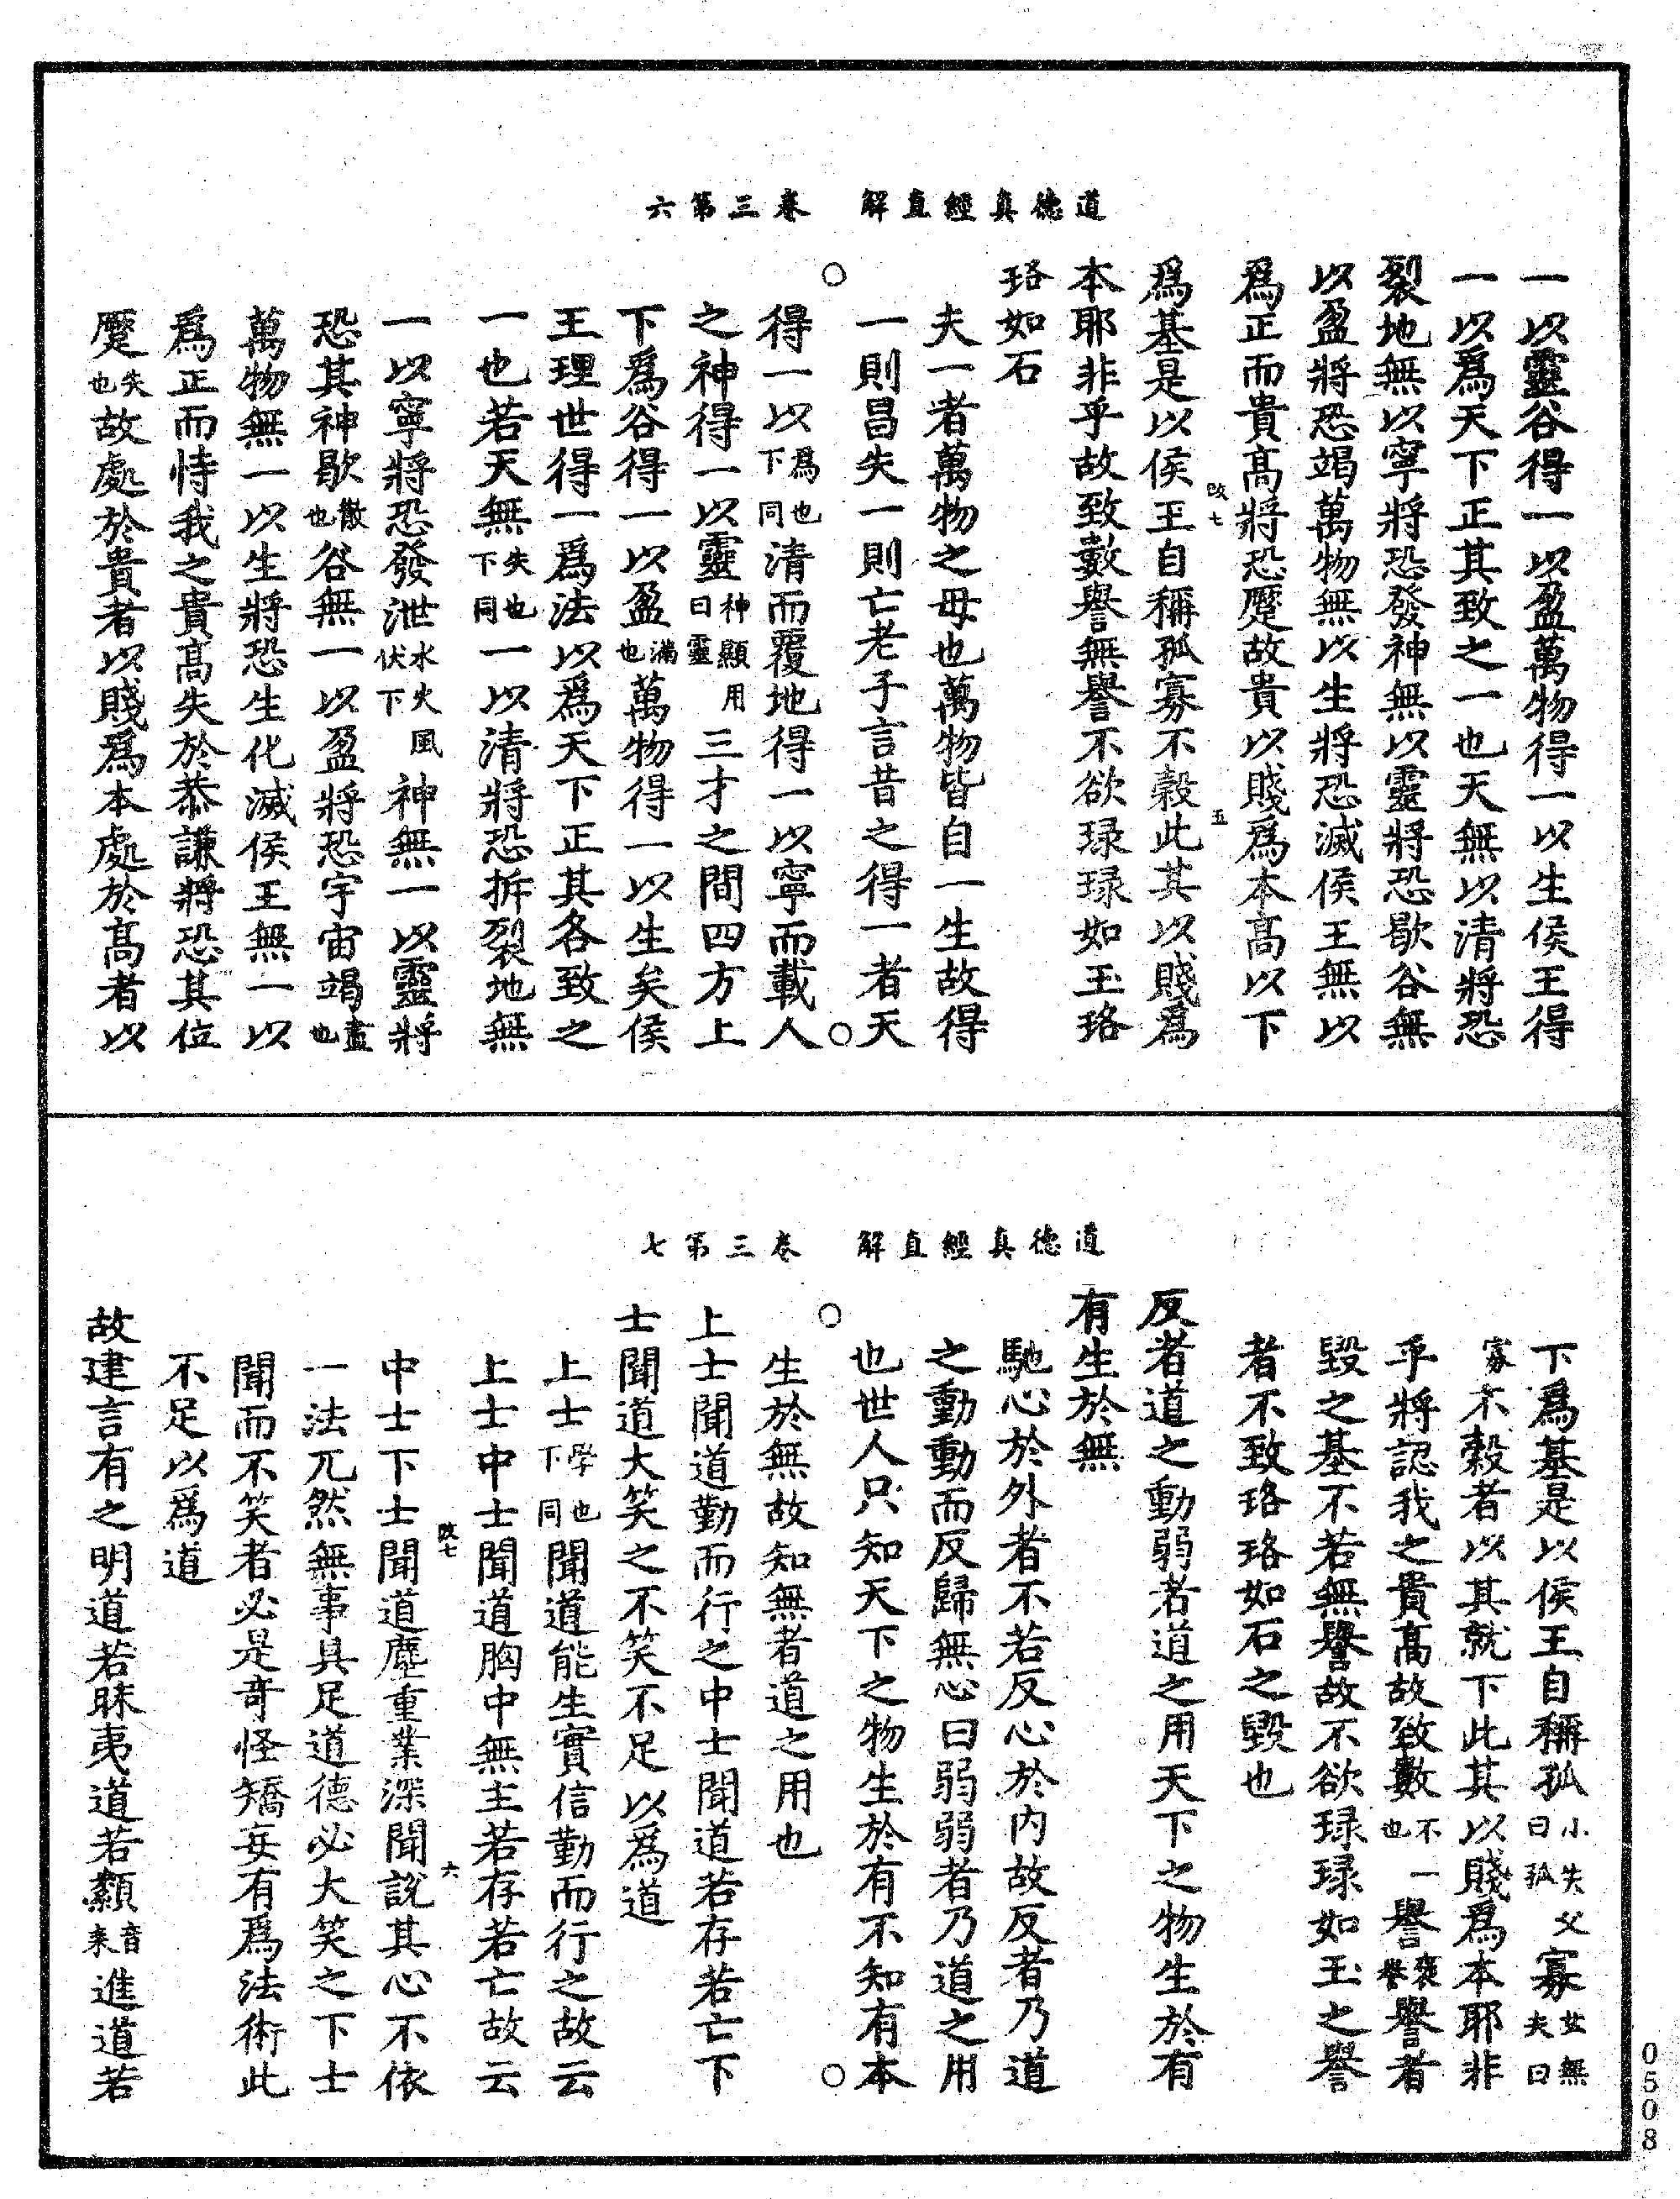 道德真經直解　卷三第六
一以靈谷得一以盈萬物得一以生侯王得
一以爲天下正其致之一也天無以清將恐
裂地無以寧將恐發神無以靈將恐歇谷無
以盈將恐竭萬物無以生將恐滅侯王無以
爲正而貴高將恐蹷故貴以賤爲本高以下
改七　五
爲基是以侯王自稱孤寡不穀此其以賤爲
本耶非乎故致數譽無譽不欲琭琭如玉珞
珞如石
夫一者萬物之母也萬物皆自一生故得
一則昌失一則亡老子言昔之得一者天
得一以爲也下同清而覆地得一以寧而載人
之神得一以靈神顯用曰靈三才之間四方上
下爲谷得一以盈滿也萬物得一以生矣侯
王理世得一爲法以爲天下正其各致之
一也若天無失也下同一以清將恐拆裂地無
一以寧將恐發泄水火風伏下神無一以靈將
恐其神歇散也谷無一以盈將恐宇宙竭盡也
萬物無一以生將恐生化滅侯王無一以
爲正而恃我之貴高失於恭謙將恐其位
蹷失也故處於貴者以賤爲本處於高者以
道德真經直解　卷三第七
下爲基是以侯王自稱孤小失父曰孤寡女無夫曰
寡不穀者以其就下此其以賤爲本耶非
乎將認我之貴高故致數不一也譽褒譽譽者
毀之基不若無譽故不欲琭琭如玉之譽
者不致珞珞如石之毀也
反者道之動弱者道之用天下之物生於有
有生於無
馳心於外者不若反心於内故反者乃道
之動動而反歸無心曰弱弱者乃道之用
也世人只知天下之物生於有不知有本
生於無故知無者道之用也
上士聞道勤而行之中士聞道若存若亡下
士聞道大笑之不笑不足以爲道
上士學也下同聞道能生實信勤而行之故云
上士中士聞道胸中無主若存若亡故云
改七　六
中士下士聞道塵重業深聞說其心不依
一法兀然無事具足道德必大笑之下士
聞而不笑者必是奇怪矯妄有爲法術此
不足以爲道
故建言有之明道若昧夷道若纇音耒進道若
0508